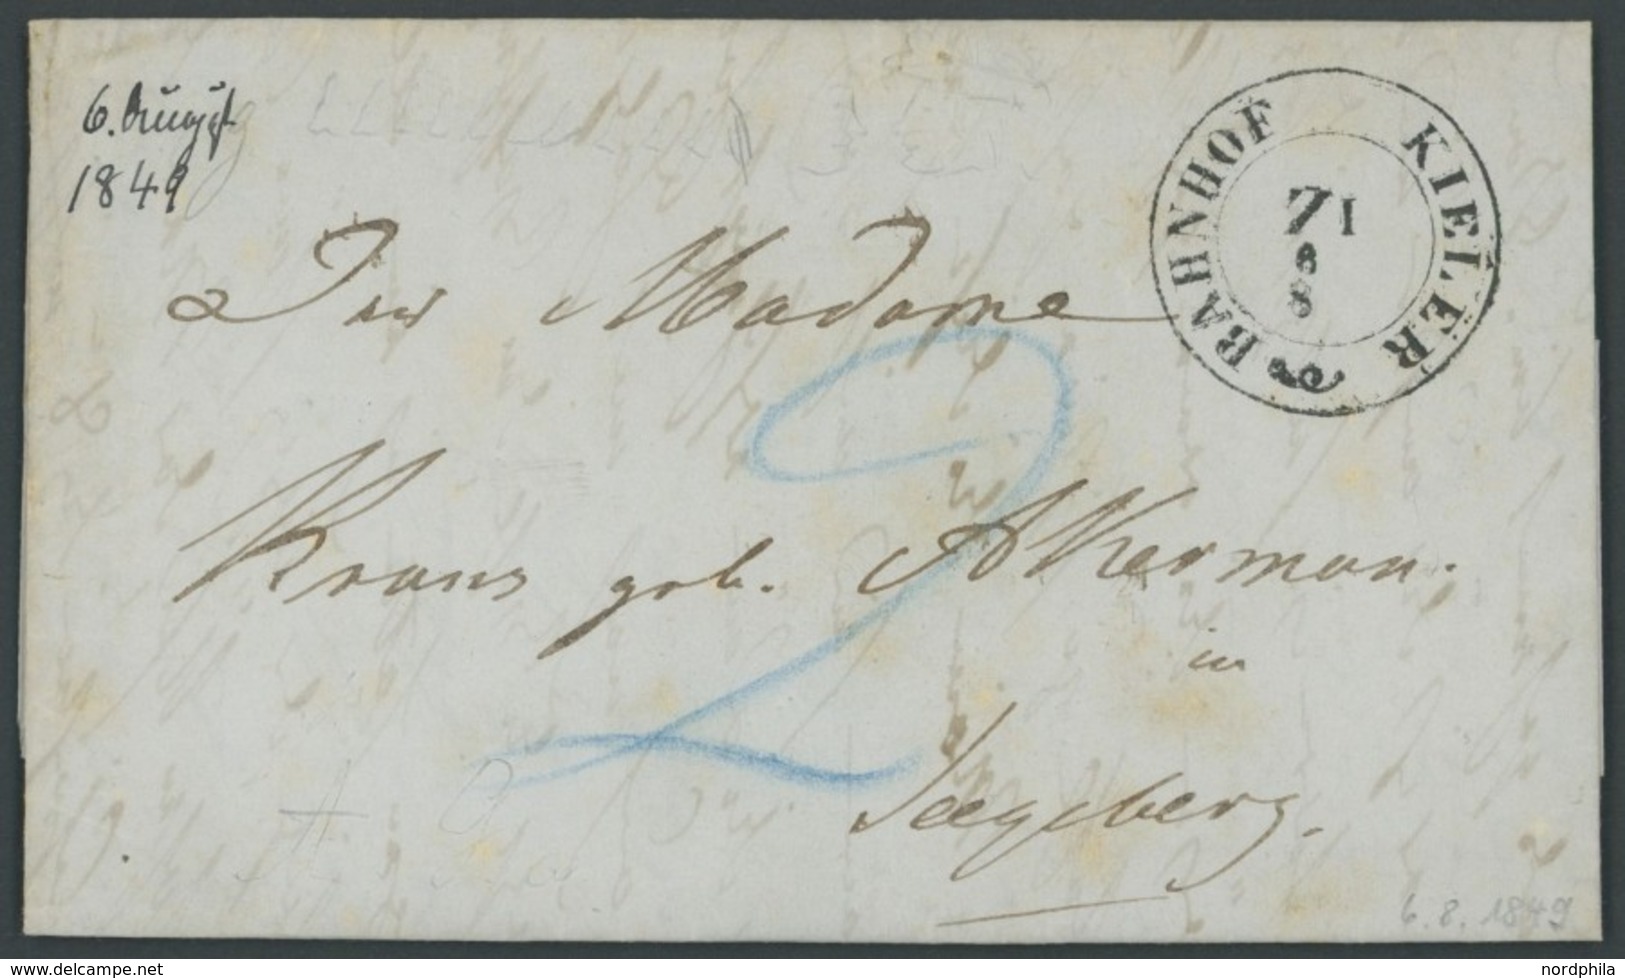 6. August
1849
KIELER BAHNHOF
Z I
6
8
Der Madame
2
Kraus geb. Akerman.
in
Seegeberg.
6.8.1849
delcampe.net
nordphila